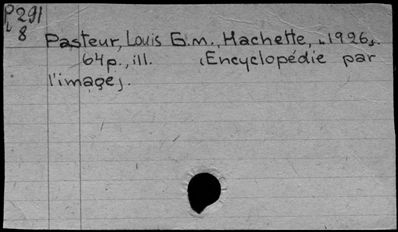 P291
8
Pasteur, Louis G.m., Hachette, [1926].
64p., ill. (Encyclopédie par
l'image).